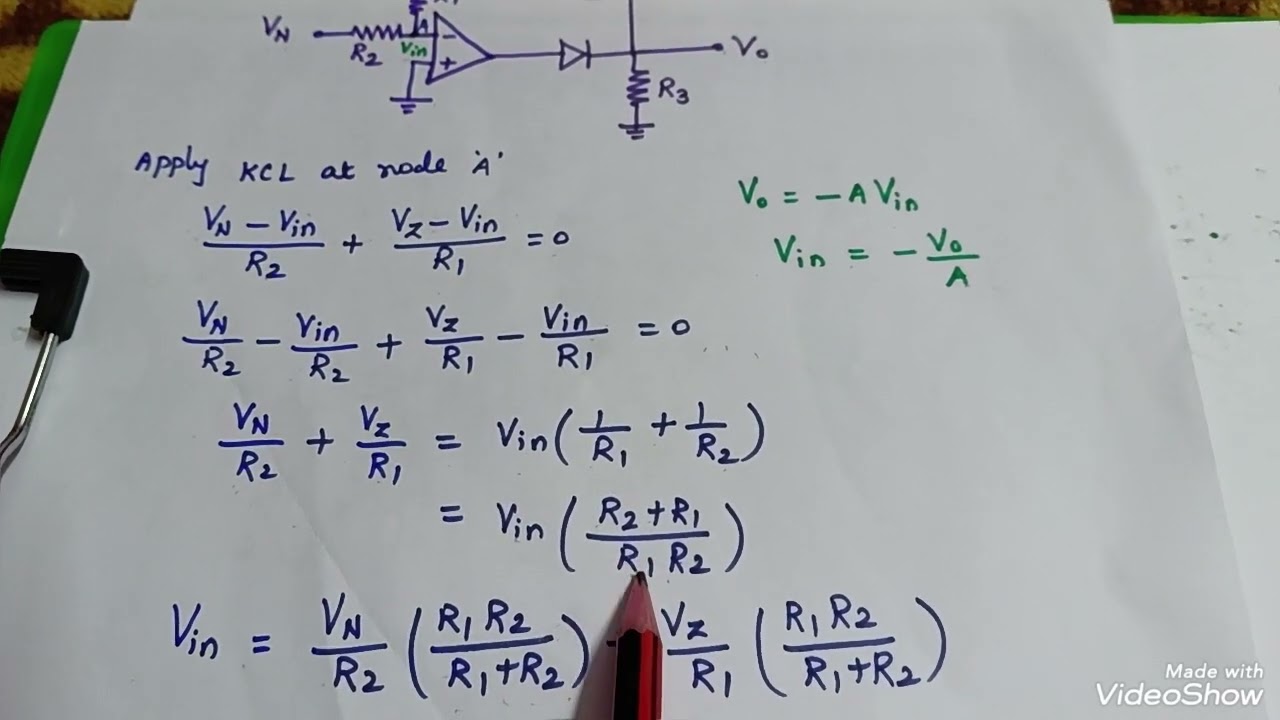 V_N R_2 V_in A - + V_o
R_3
Apply KCL at node 'A'
V_o = -A V_in
(V_N - V_in)/R_2 + (V_Z - V_in)/R_1 = 0
V_in = - V_o/A
V_N/R_2 - V_in/R_2 + V_Z/R_1 - V_in/R_1 = 0
V_N/R_2 + V_Z/R_1 = V_in (1/R_1 + 1/R_2)
= V_in ((R_2 + R_1)/(R_1 R_2))
V_in = V_N/R_2 ((R_1 R_2)/(R_1 + R_2)) V_Z/R_1 ((R_1 R_2)/(R_1 + R_2))
Made with
VideoShow